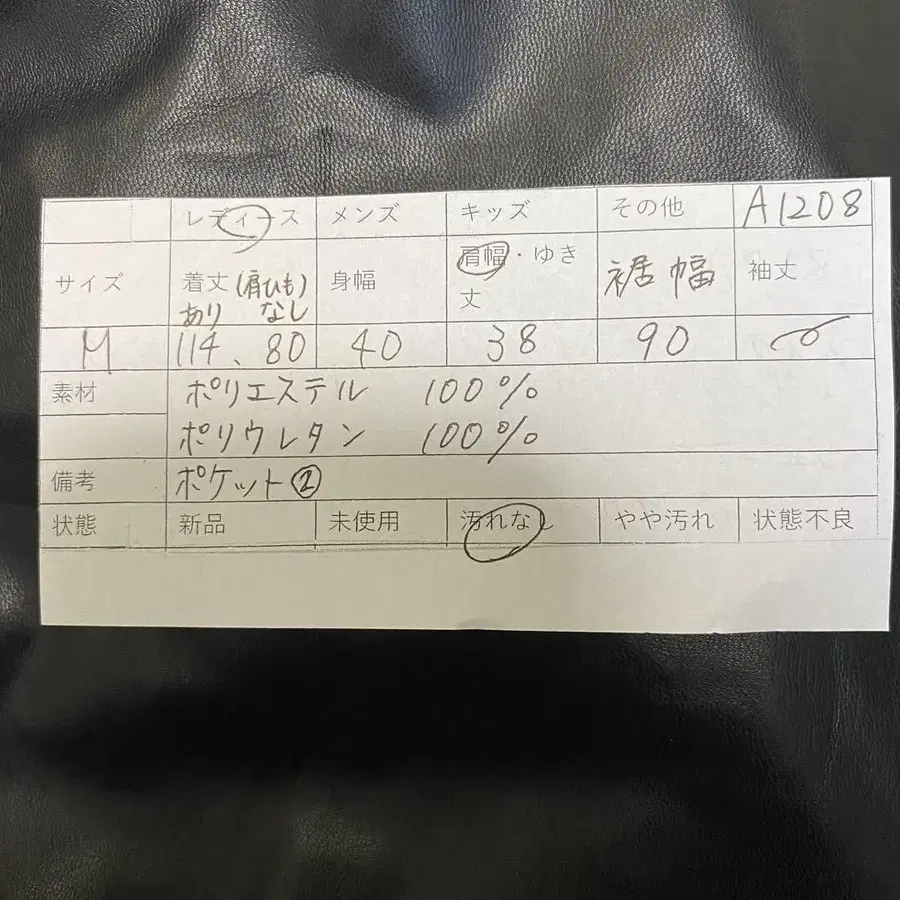 レディース メンズ キッズ その他 A1208
サイズ 着丈(肩ひも) 身幅 肩幅・ゆき 裾幅 袖丈
あり なし 丈
M 114、80 40 38 90
素材 ポリエステル 100%
ポリウレタン 100%
備考 ポケット②
状態 新品 未使用 汚れなし やや汚れ 状態不良